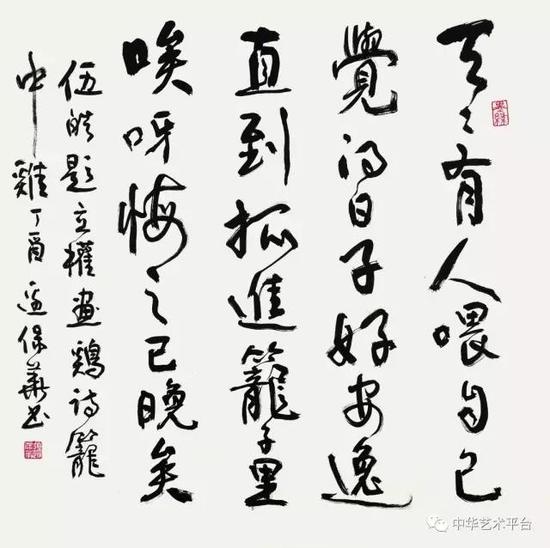 天天有人喂自己
覺得日子好安逸
直到抓進籠子里
唉呀悔之已晚矣
伍皓题立權畫鷄诗籠
中雞丁酉保華书
中华艺术平台